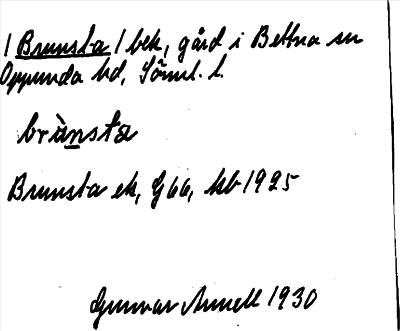 / Brunsta / bek, gård i Bettna sn
Oppunda hd, Söml. l.
brùnsta
Brunsta ek, G66, kb 1925
Gunnar Annell 1930